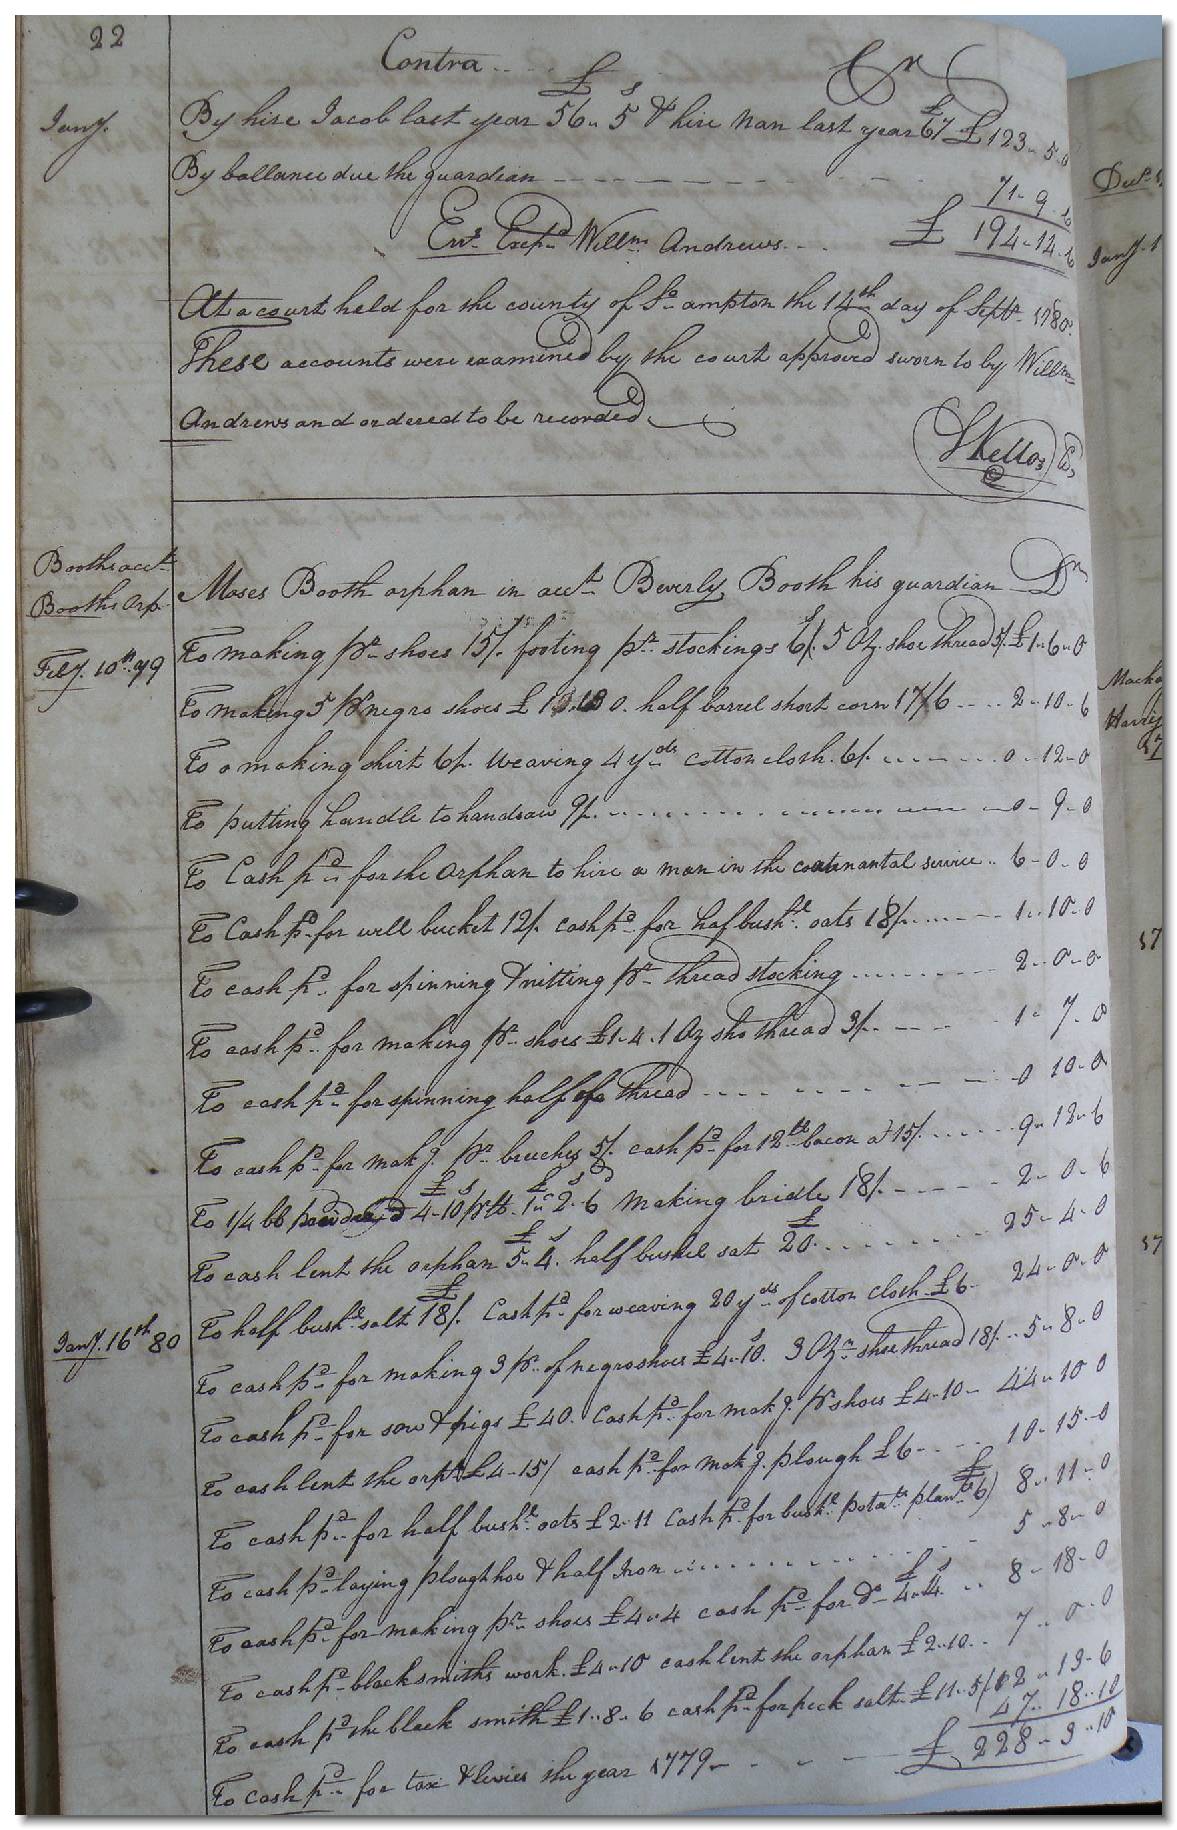 22
Contra Cr
£ s £
Jany. By hire Jacob last year 56 " 5 & hire Nan last year 67 £ 123 " 5 " 0
By ballance due the guardian 71 - 9 - 6
Errs. Excepd. Willm. Andrews £ 194 - 14 - 6
At a court held for the county of So. ampton the 14th day of Septr. 1780.
These accounts were examined by the court approved sworn to by Willm.
Andrews and ordered to be recorded
Booths acct.
Booths Orp.
Moses Booth orphan in acct. Beverly Booth his guardian Dr
Feby. 10th. 79 To making pr. shoes 15/. footing pr. stockings 6/. 5 Oz. shoe thread 5/. £ 1 " 6 " 0
To making 5 pr negro shoes £ 0. half barrel short corn 17/6 2 - 10 - 6
To a making shirt 6/. weaving 4 yds. cotton cloth. 6/. 0 - 12 - 0
To putting handle to handsaw 9/. 0 - 9 - 0
To Cash pd. for the Orphan to hire a man in the continantal service 6 - 0 - 0
To Cash pd. for well bucket 12/. cash pd. for haf bushl. oats 18/. 1 " 10 - 0
To cash pd. for spinning & nitting pr. thread stocking 2 - 0 - 0
To cash pd. for making pr. shoes £1 - 4. 1 Oz sho thread 3/. 1 - 7 - 0
To cash pd. for spinning half of a thread 0 10 - 0
To cash pd. for makg. pr. breeches 5/. cash pd. for 12 lb. bacon at 15/. 9 " 12 - 6
£ s £ s d
To 1/4 lb powder 4 - 10 pr lb. 1 " 2 - 6 making bridle 18/. 2 - 0 - 6
£ s £
To cash lent the orphan 5 " 4. half bushel salt 20. 25 - 4 - 0
£
To half bushl. salt 18/. Cash pd. for weaving 20 yds. of cotton cloth. £6 - 24 - 0 - 0
Jany. 16th 80 To cash pd. for making 3 pr. of negro shoes £4 " 10. 3 Ozs. shoe thread 18/. 5 " 8 - 0
To cash pd. for sow & pigs £40. Cash pd. for makg. pr shoes £4 - 10 - 44 " 10 0
To cash lent the orpn. £4 - 15/ cash pd. for makg. plough £6 - 10 - 15 - 0
£
To cash pd. for half bushl. oats £2 - 11 Cash pd. for bushl. potato plants 6) 8 " 11 - 0
To cash pd. laying plough hoe & half Iron 5 - 8 - 0
£ s
To cash pd. for making pr. shoes £4 " 4 cash pd. for do. 4 " 4. 8 - 18 - 0
To cash pd. blacksmiths work. £4 - 10 cash lent the orphan £2 - 10. 7 0 - 0
To cash pd the black smith £1 " 8 " 6 cash pd. for peck salt. £11 - 5/ 12 " 13 - 6
To cash pd. for tax & levies the year 1779 47 " 18 " 10
£ 228 - 3 " 10